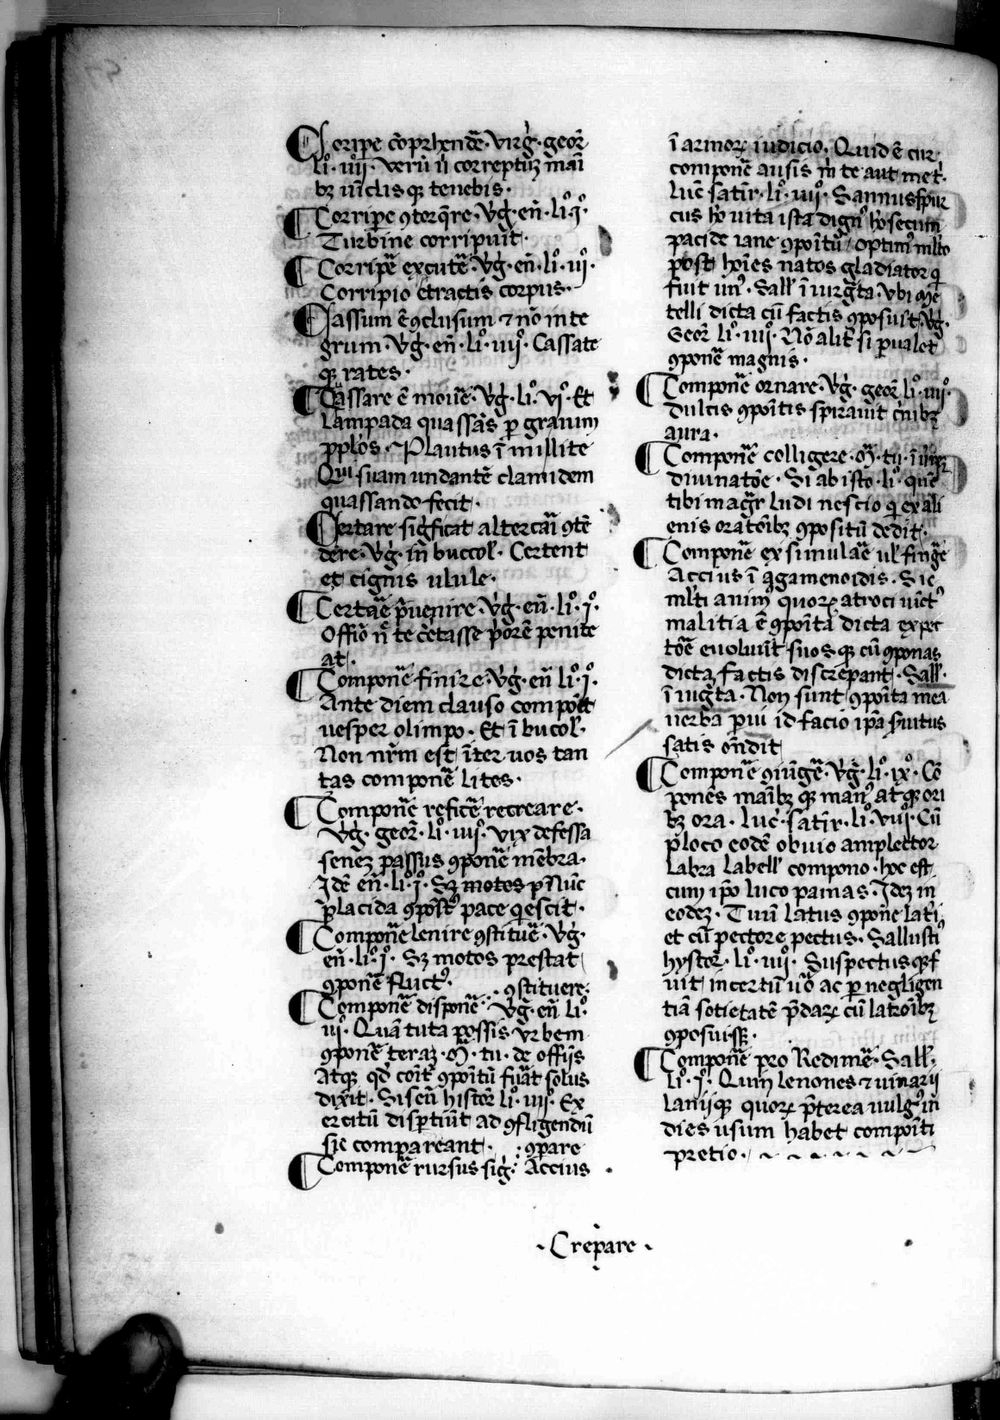 Coripe cōprhendē. virg̃. geor̃
li. iiij. Verū ū correptuʒ mãi
bʒ vīclis qʒ tenebis.
Corripe ꝯtorq̄re. v̄g. eñ. li. j.
Turbine corripuit.
Corripē excutē. v̄g. eñ. li. iij.
Corripio ētractis corpus.
Cassum ē ꝯclusum ⁊ nō inte
grum. v̄g. eñ. li. iiij. Cassate
qʒ rates.
Cassare ē mouē. v̄g. li. vj. Et
lampada quassās ꝑ graium
pplos. Plautus ī millite
Qui suam undantē clamidem
quassando fecit.
Certare sigficat altercari ꝯtē
dere. v̄g. in buccol̄. Certent
et cignis ulule.
Certāe p̄uenire. v̄g. eñ. li. j.
Offiō n̄ te c̄tasse p̄orē penite
at.
Componē finire. v̄g. eñ li. j.
Ante diem clauso compōet
uesper olimpo. Et ī bucol̄.
Non nr̄m est īter uos tan
tas componē lites.
Componē reficē recreare.
v̄g. geor̃. li. iiij. vix defessa
seneʒ passus ꝯponē mēbra.
Idē eñ. li. j. Sʒ motos p Nūc
placida ꝯpōstꝰ pace qescit.
Componē lenire ꝯstituē. v̄g.
eñ. li. j. Sʒ motos prestat
ꝯponē fluctꝰ. ꝯstituere.
Componē disponē. v̄g. eñ li.
iij. Quā tuta possis vrbem
ꝯponē teraʒ. M̄. tu. de offiis
Atqʒ qd̄ coīt ꝯpoītū fūat solus
dixit. Siscū histor̄ li. iiij. Ex
ercitū disꝑtiūt ad ꝯfligendū
sic compareant. ꝯpare
Componē rursus sig̃. Accius
ī armoꝝ iudicio. Quid ē cur
componē ausis m̄ te aut met.
Lucē satir̄. li. iiij. Samnus spur
cus hō uita ista dignꝰ hō secum
pacide iane ꝯpoītū. optimꝰ mlto
post hoīes natos gladiator q
fuit unꝰ. Sall̄ ī iurg̃ta. Vbi me
telli dicta cū factis ꝯposuit. v̄g.
Geor̄ li. iiij. Nō alit̄ si ꝑualet
ꝯponē magnis.
Componē ornare. v̄g. geor̄ li. iiij.
Dulcis ꝯpoītis spirauit c̄nibʒ
aura.
Componē colligere. M̄. tu. ī
diuinatōe. Si ab isto. li. quē
tibi magr̄ ludi nescio q ex ali
enis oratōibʒ ꝯpositū dedit.
Componē ex simulāe ul̄ fingē
Accius ī agamenoidis. Sic
ml̄ti animꝰ quoꝝ atroci uictꝰ
malitia ē ꝯpoīta dicta expec
tōe euoluīt suos qʒ cū ꝯponas
dictaʒ factis discrepant. Sall̄.
ī iug̃ta. Non sunt ꝯpoīta mea
uerba ꝑui id facio ip̄a s̄uitus
satis ōndit
Componē ꝯiūgē. v̄g. li. ix. Cō
ponēs maībʒ qʒ manꝰ atqʒ ori
bʒ ora. luc̄. satir̄. li. viij. Cū
ploco eodē obuio amplector
labra labell̄ compono. hoc est
cum ip̄o luco pamas. Ideʒ in
eodeʒ. Tum latus ꝯpōne lat̄i
et cū pectore pectus. Sallustiꝰ
hystor̄. li. iiij. Suspectusqʒ f
uit incertū ūo ac ꝑ negligen
tiā sotietatē p̄daꝝ cū latrōibʒ
ꝯposuissʒ.
Componē pro Redimē. Sall̄.
li. j. Qum lenones ⁊ uinarii
laniiqʒ quoꝝ p̄terea uulgꝰ in
dies usum habet compoīti
pretio.
.Crepare.